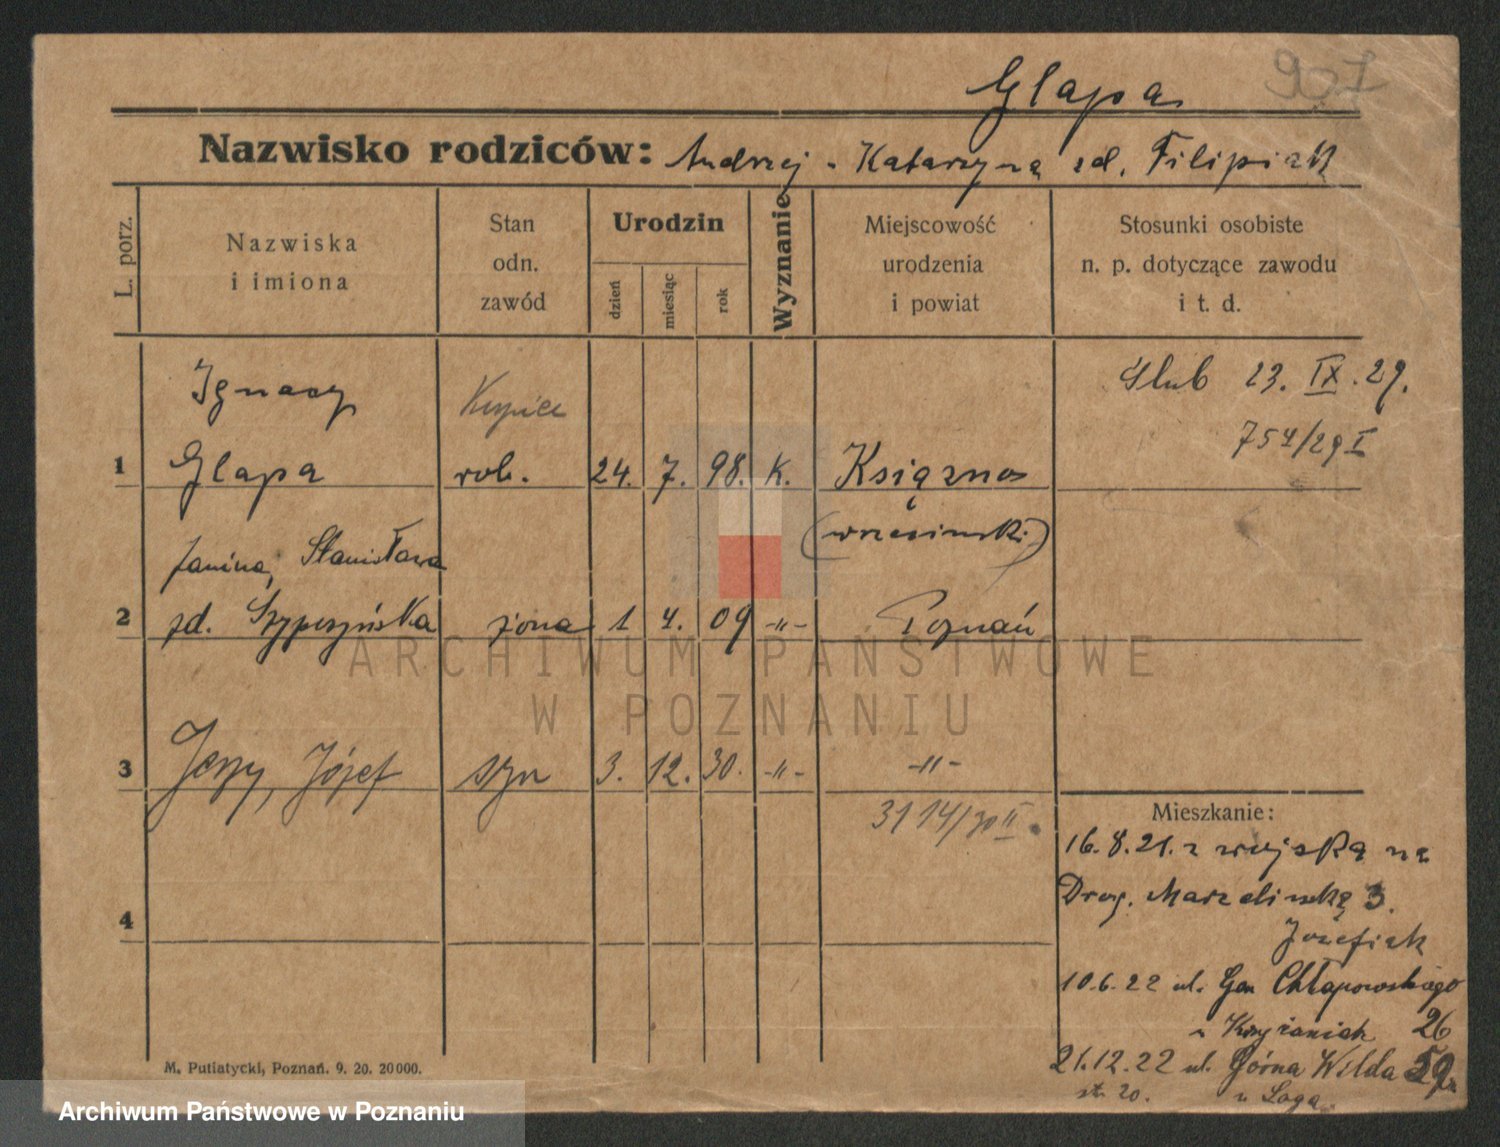 907
Glapa
Nazwisko rodziców: Andrzej - Katarzyna zd. Filipiak
L. porz.
Nazwiska
i imiona
Stan
odn.
zawód
Urodzin
dzień
miesiąc
rok
Wyznanie
Miejscowość
urodzenia
i powiat
Stosunki osobiste
n. p. dotyczące zawodu
i t. d.
Ignacy
Kupiec
Slub 23. IX. 29.
754/29 I
1 Glapa rob. 24. 7. 98. K. Książnos
(wrzesiński)
Janina, Stanisława
2 zd. Szypszyńska żona 1 4. 09 -"- Poznań
3 Jerzy, Józef syn 3. 12. 30. -"- -"-
3114/30 II.
Mieszkanie:
16.8.21. z wojska na
Drog. Marcelińską 3.
Józefiak
4
10.6.22 ul. Gen Chłapowskiego
u Krzyżaniak 26
21.12.22 ul. Górna Wilda 59
str. 20. u Łaga
M. Putiatycki, Poznań. 9. 20. 20000.
ARCHIWUM PAŃSTWOWE
W POZNANIU
Archiwum Państwowe w Poznaniu